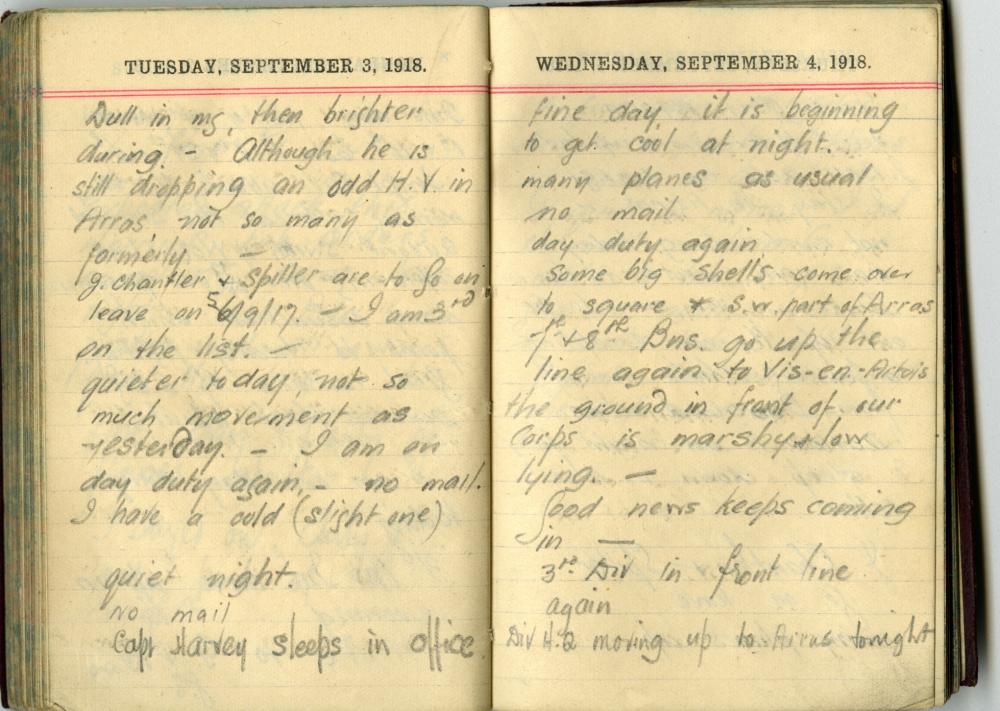 TUESDAY, SEPTEMBER 3, 1918.
Dull in mg, then brighter
during. - Although he is
still dropping an odd H.V in
Arras, not so many as
formerly —
J. Chantler + Spiller are to go on
leave on 5/6/9/17. - I am 3rd
on the list. —
quieter today, not so
much movement as
yesterday. - I am on
day duty again, - no mail.
I have a cold (slight one)
quiet night.
No mail
Capt Harvey sleeps in office
WEDNESDAY, SEPTEMBER 4, 1918.
fine day, it is beginning
to get cool at night.
many planes as usual
no mail
day duty again
some big shells come over
to square + S.W. part of Arras
7th + 8th Bns. go up the
line again to Vis-en-Artois
the ground in front of our
Corps is marshy + low
lying. —
Good news keeps coming
in —
3rd Div in front line
again
Div H.Q moving up to Arras tonight